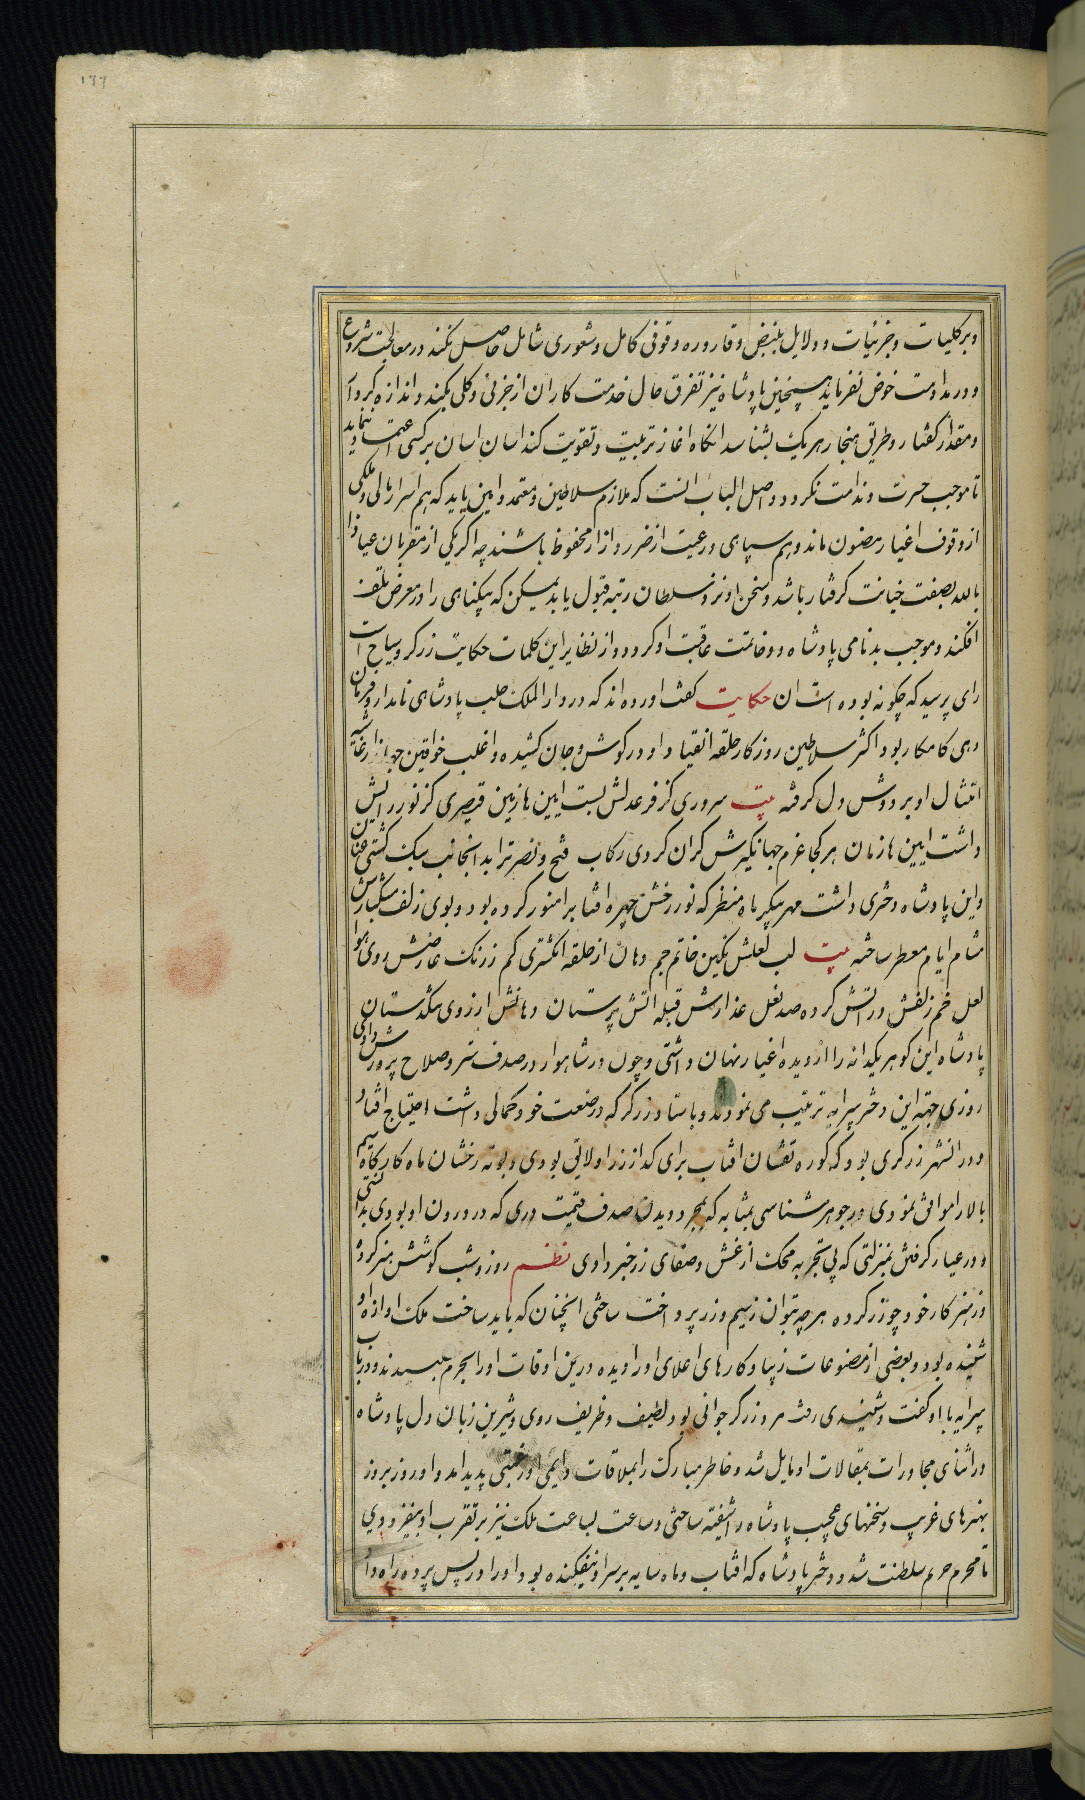 ۱۷۷
و بر کلیات و جزئیات و دلایل نبض و قاروره وقوفی کامل و شعوری شامل حاصل نکند در معالجت شروع
و در مداومت خوض نفرماید همچنین پادشاه نیز تفرق حال خدمت کاران از جزئی و کلی بکند و اندازه کردار
و مقدار کفتار و طریق هنجار هر یک بشناسد انکاه اغاز تربیت و تقویت کند اسان اسان بر کسی اعتماد ننماید
تا موجب حسرت و ندامت نکردد و اصل الباب انست که ملازم سلاطین و معتمد و امین باید که هم اسرار مالی و ملکی
از وقوف اغیار مضنون ماند و هم سپاهی و رعیت از ضرر و ازار محفوظ باشند چه اکر یکی از مقربان عیاذا
بالله بصفت خیانت کرفتار باشد و سخن او نزد سلطان رتبه قبول یابد یمکن که بیکناهی را در معرض تلف
افکند و موجب بدنامی پادشاه و وخامت عاقبت او کردد و از نظایر این کلمات حکایت زرکر و سیاح است
رای پرسید که چکونه بوده است ان حکایت کفت اورده اند که در دار الملک حلب پادشاهی نامدار و فرمان
دهی کامکار بود اکثر سلاطین روزکار حلقه انقیاد او در کوش جان کشیده و اغلب خواقین جهاندار غاشیه
امتثال او بر دوش دل کرفته بیت سروری کز فر عدلش بست ایین ها زمین قیصری کز نور رایش
داشت ایین ها زمان هر کجا عزم جهانکیرش کران کردی رکاب فتح و نصرت زا بدانجانب سبک کشتی عنان
و این پادشاه دختری داشت مهر پیکر ماه منظر که نور رخش چهره افتاب را منور کرده بود و بوی زلف مشکبارش
مشام ایام معطر ساخته بیت لب لعلش نکین خاتم جم دهان از حلقه انکشتری کم ز رنک عارضش روی هوا
لعل خم زلفش در اتش کرده صد نعل عذارش قبله اتش پرستان دهانش ارزوی تنکدستان
پادشاه این کوهر یکدانه را از دیده اغیار نهان داشتی و چون در شاهوار در صدف ستر و صلاح پرورش دادی
روزی جهته این دختر پیرایه ترتیب می نمودند و باستاد زرکر که در صنعت خود کمالی داشت احتیاج افتاد
و در انشهر زرکری بود که کوره تفشان افتاب برای کداز زر او لایق بودی و بوته رخشان ماه کارکاه سیم
بالا را موافق نمودی در جوهر شناسی بمثابه که بمجرد دیدن صدف قیمت دری که در درون او بودی بدانستی
و در عیار کرفتن بمنزلتی که بی تجربه محک از غش و صفای زر خبر دادی نظم روز و شب کوشش هنر کردی
وز هنر کار خود چو زر کرده هر چه بتوان ز سیم و زر پرداخت ساختی انچنان که باید ساخت ملک اوازه او
شنیده بود و بعضی از مصنوعات زیبا و کارهای اعلای او را دیده درین اوقات او را بحرم طلبید و در باب
پیرایه با او کفت و شنیدی رفت مرد زرکر جوانی بود لطیف و ظریف روی و شیرین زبان دل پادشاه
در اثنای محاورات بمقالات او مایل شد و خاطر مبارک را بملاقات دایمی او رغبتی پدید امد و او روز بروز
بهنرهای غریب و سخنهای عجیب پادشاه را شیفته ساختی و ساعت بساعت ملک نیز بر تقرب او بیفزودی
تا محرم حرم سلطنت شد و دختر پادشاه که افتاب و ماه سایه بر سر او نیفکنده بود او را در پس پرده راه داد